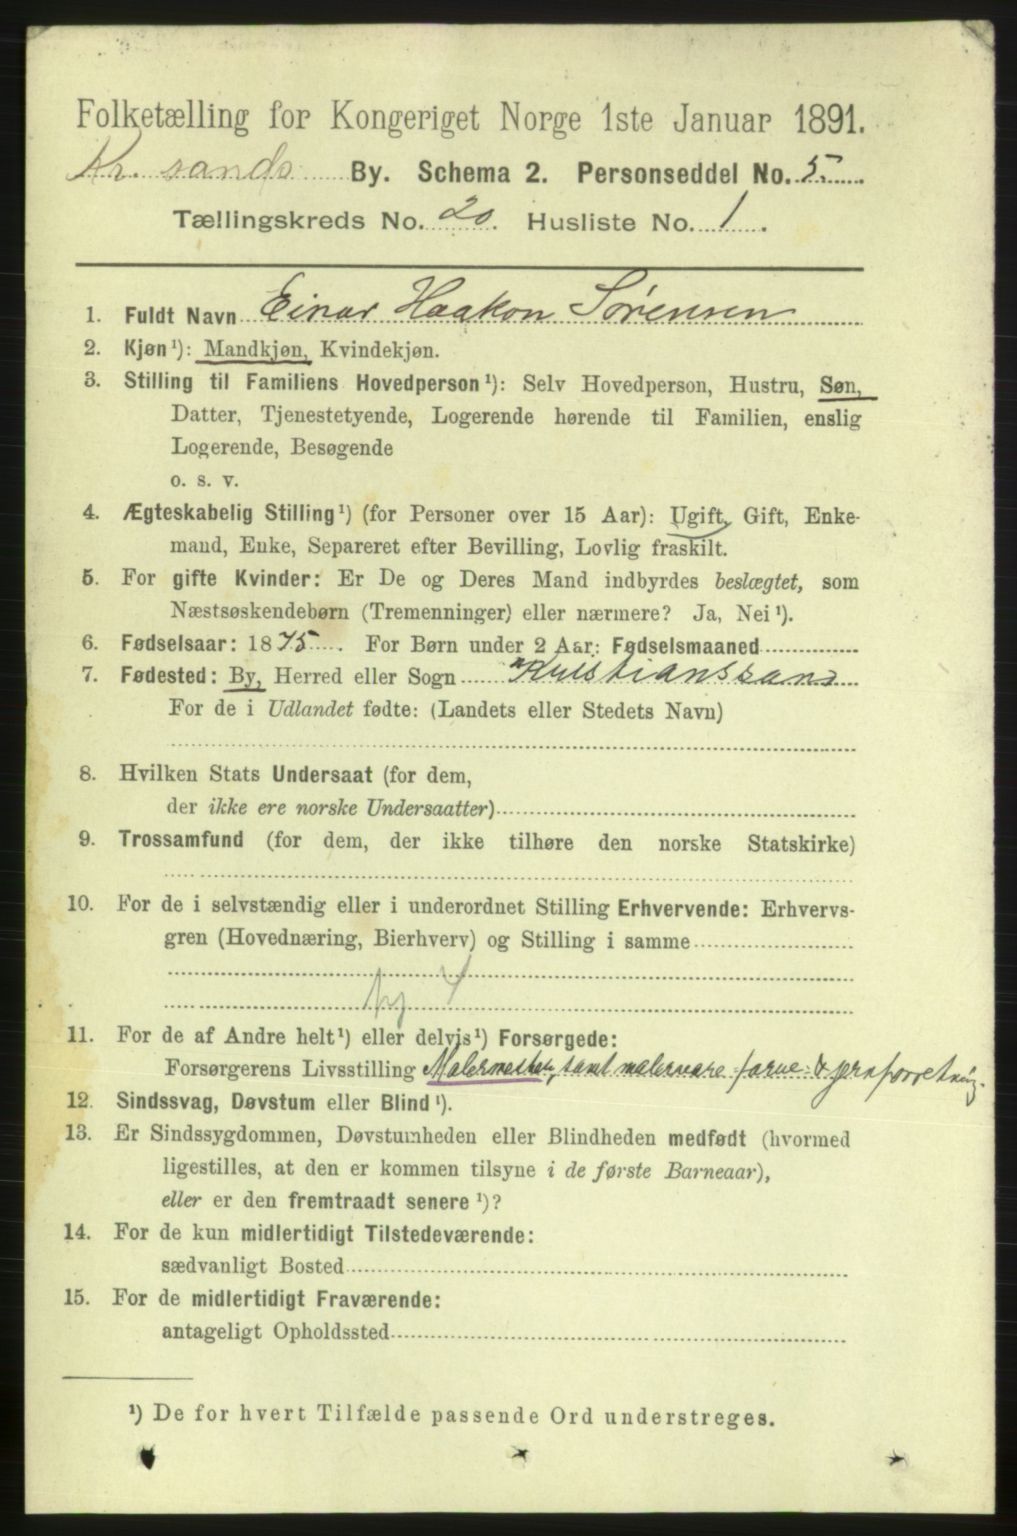 Folketælling for Kongeriget Norge 1ste Januar 1891.
Kr. sands By. Schema 2. Personseddel No. 5.
Tællingskreds No. 20. Husliste No. 1.
1. Fuldt Navn Einar Haakon Sørensen
2. Kjøn ¹): Mandkjøn, Kvindekjøn.
3. Stilling til Familiens Hovedperson ¹): Selv Hovedperson, Hustru, Søn,
Datter, Tjenestetyende, Logerende hørende til Familien, enslig
Logerende, Besøgende
o. s. v.
4. Ægteskabelig Stilling ¹) (for Personer over 15 Aar): Ugift, Gift, Enke-
mand, Enke, Separeret efter Bevilling, Lovlig fraskilt.
5. For gifte Kvinder: Er De og Deres Mand indbyrdes beslægtet, som
Næstsøskendebørn (Tremenninger) eller nærmere? Ja, Nei ¹).
6. Fødselsaar: 1875. For Børn under 2 Aar: Fødselsmaaned
7. Fødested: By, Herred eller Sogn Kristianssand
For de i Udlandet fødte: (Landets eller Stedets Navn)
8. Hvilken Stats Undersaat (for dem,
der ikke ere norske Undersaatter)
9. Trossamfund (for dem, der ikke tilhøre den norske Statskirke)
10. For de i selvstændig eller i underordnet Stilling Erhvervende: Erhvervs-
gren (Hovednæring, Bierhverv) og Stilling i samme
11. For de af Andre helt ¹) eller delvis ¹) Forsørgede:
Forsørgerens Livsstilling Malermester, samt malervare farve & jernforretning.
12. Sindssvag, Døvstum eller Blind ¹).
13. Er Sindssygdommen, Døvstumheden eller Blindheden medfødt (hvormed
ligestilles, at den er kommen tilsyne i de første Barneaar),
eller er den fremtraadt senere ¹)?
14. For de kun midlertidigt Tilstedeværende:
sædvanligt Bosted
15. For de midlertidigt Fraværende:
antageligt Opholdssted
¹) De for hvert Tilfælde passende Ord understreges.